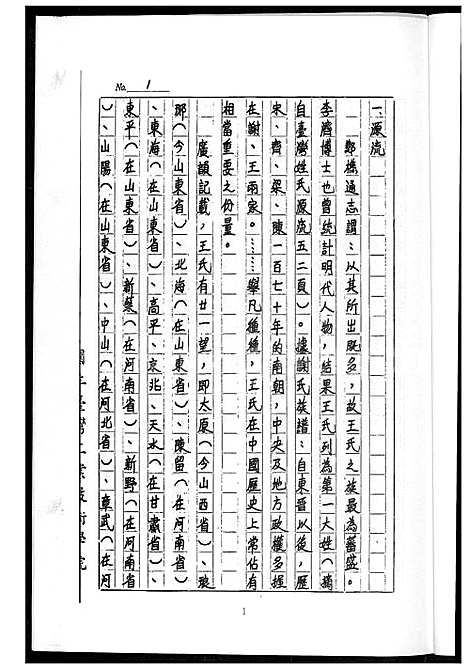 No. 1
一、源流
鄭樵通志謂：以其所出既多，故王氏之族最為蕃盛。
李濟博士也曾統計明代人物，結果王氏列為第一大姓（摘
自臺灣姓氏源流五二頁）。據謝氏族譜：自東晉以後，歷
宋、齊、梁、陳一百七十年的南朝，中央及地方政權多握
在謝、王兩家。……舉凡種種，王氏在中國歷史上常佔有
相當重要之份量。
廣韻記載，王氏有廿一望，即太原（今山西省）、琅
琊（今山東省）、北海（在山東省）、陳留（在河南省）
、東海（在山東省）、高平、京兆、天水（在甘肅省）、
東平（在山東省）、新蔡（在河南省）、新野（在河南省
）、山陽（在山東省）、中山（在河北省）、章武（在河
國立臺灣工業技術學院
1